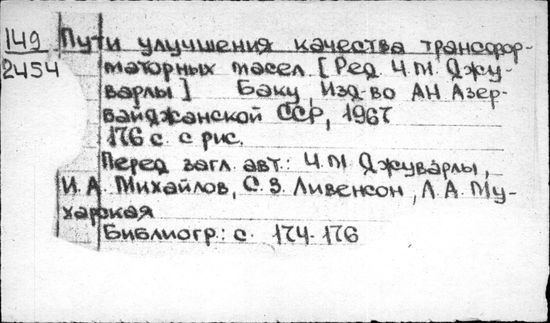 149 Пути улучшения качества трансфор-
2454 маторных масел [Ред. Ч.М. Джу-
варлы] Баку, Изд-во АН Азер-
байджанской ССР, 1967
176 с. с рис.
Перед загл. авт.: Ч.М. Джуварлы,
И.А. Михайлов, С.З. Ливенсон, Л.А. Му-
харская
Библиогр.: с. 174-176